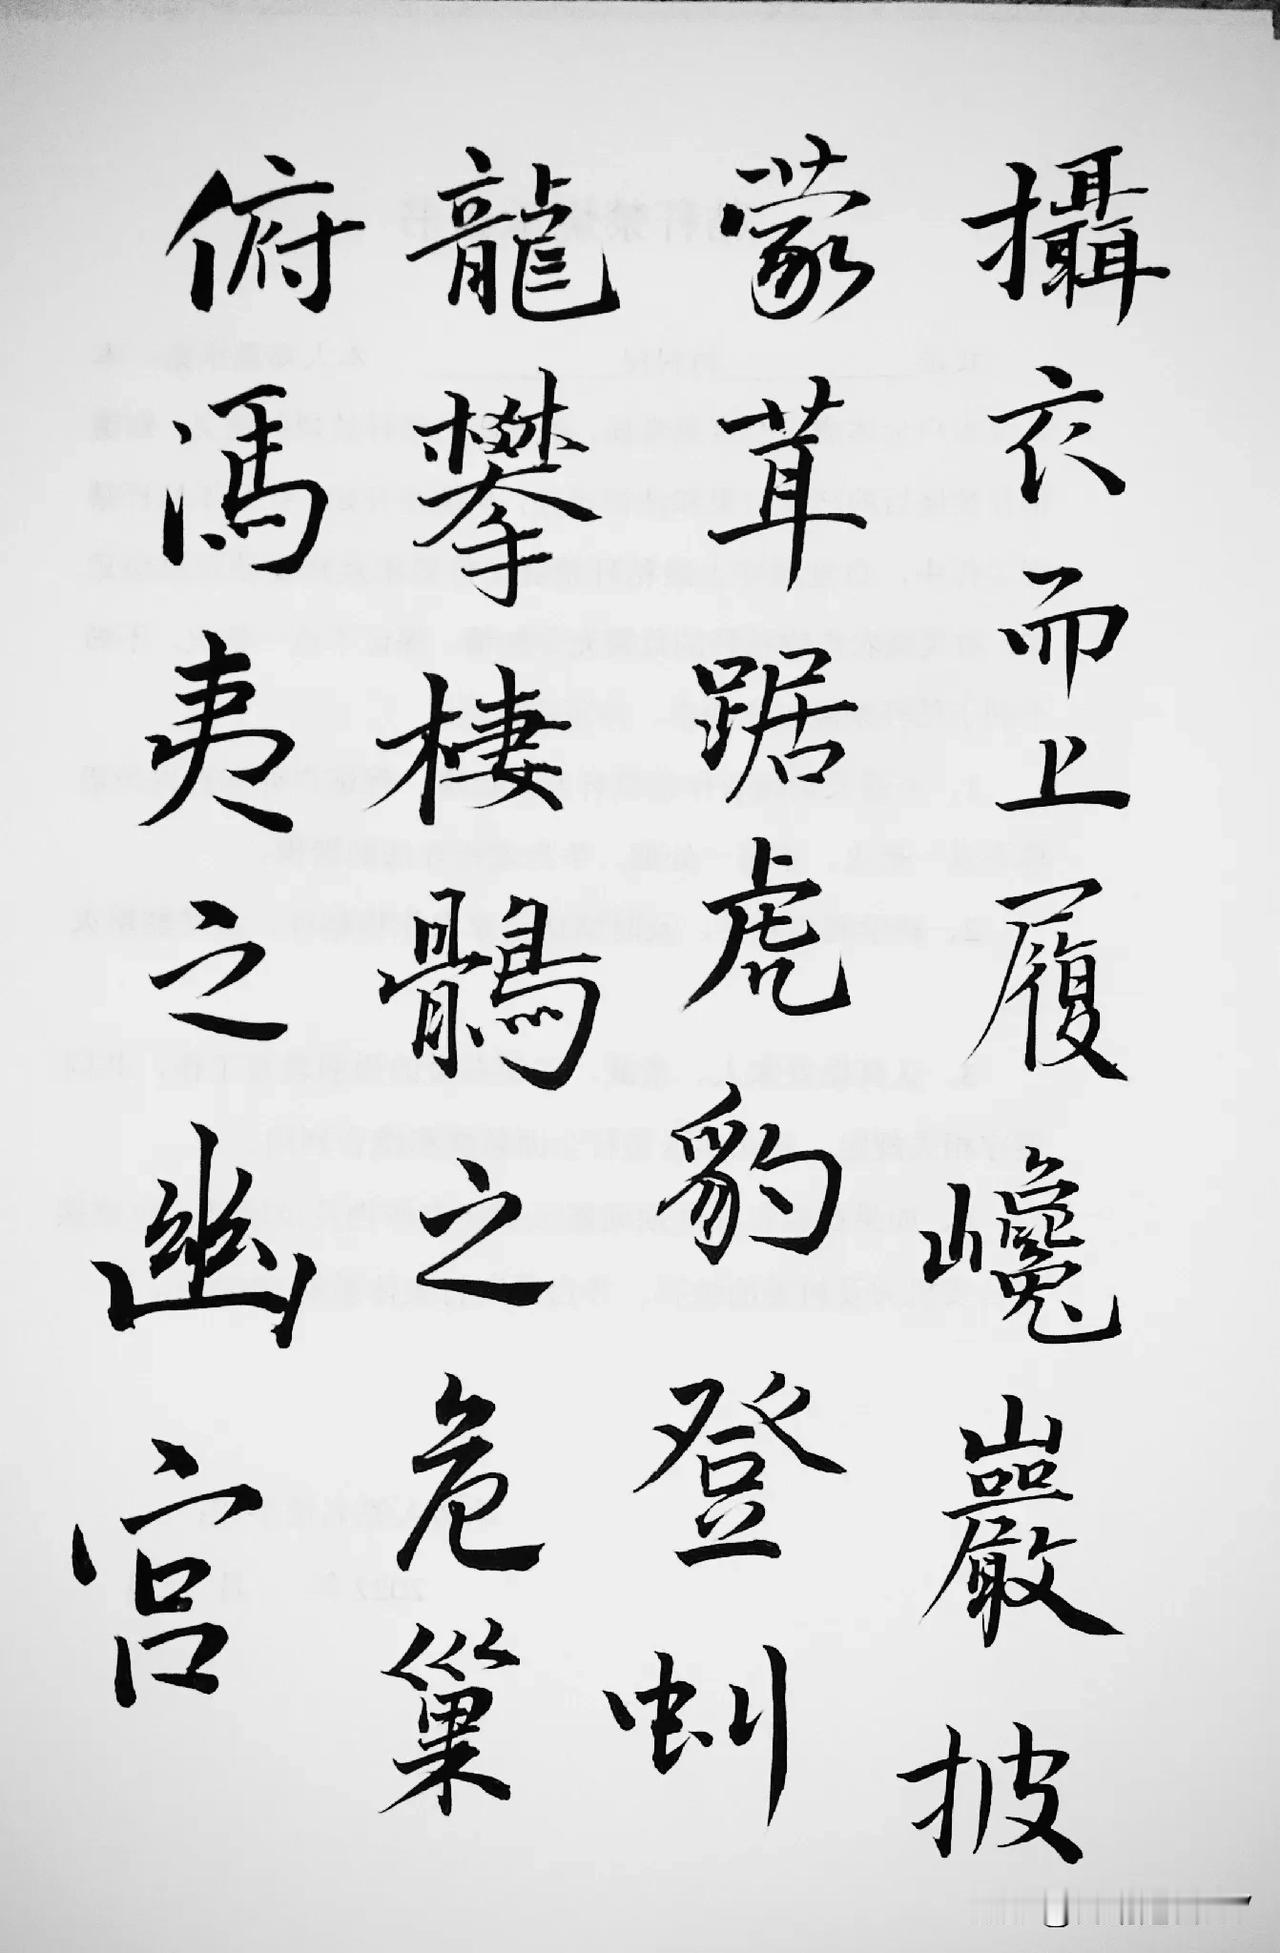 攝衣而上履巉巖披
蒙茸踞虎豹登虯
龍攀棲鶻之危巢
俯馮夷之幽宮